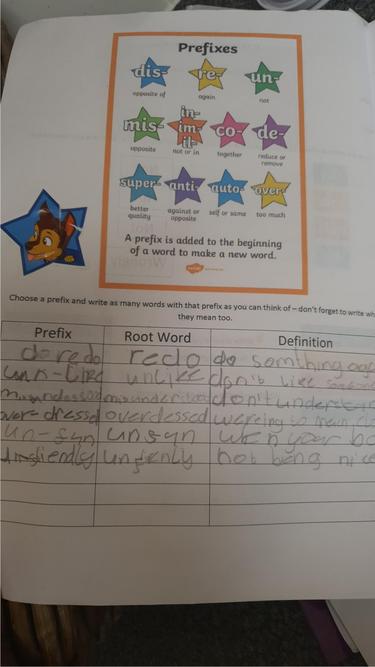 Prefixes
dis- re- un-
opposite of again not
mis- in- im- il- co- de-
opposite not or in together reduce or remove
super- anti- auto- over-
better quality against or opposite self or same too much
A prefix is added to the beginning
of a word to make a new word.
Choose a prefix and write as many words with that prefix as you can think of – don't forget to write wh
they mean too.
Prefix Root Word Definition
do redo redo do somthing aga
unn-like unlike don't like
don't understan
over-dressed overdessed wereing to
un-fyn unfyn wen your bo
unfrenly not being nice